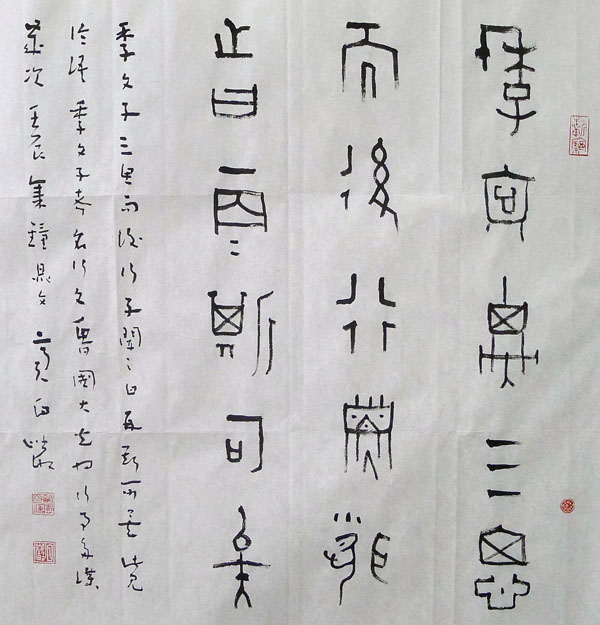 季文子三思
而後行子聞
之曰再斯可矣
季文子三思而後行子聞之曰再斯可矣
論語季文子名行文魯國大夫也行事
歲次壬辰集鐘鼎文